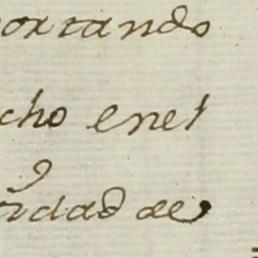 ortando
cho enel
ridad de